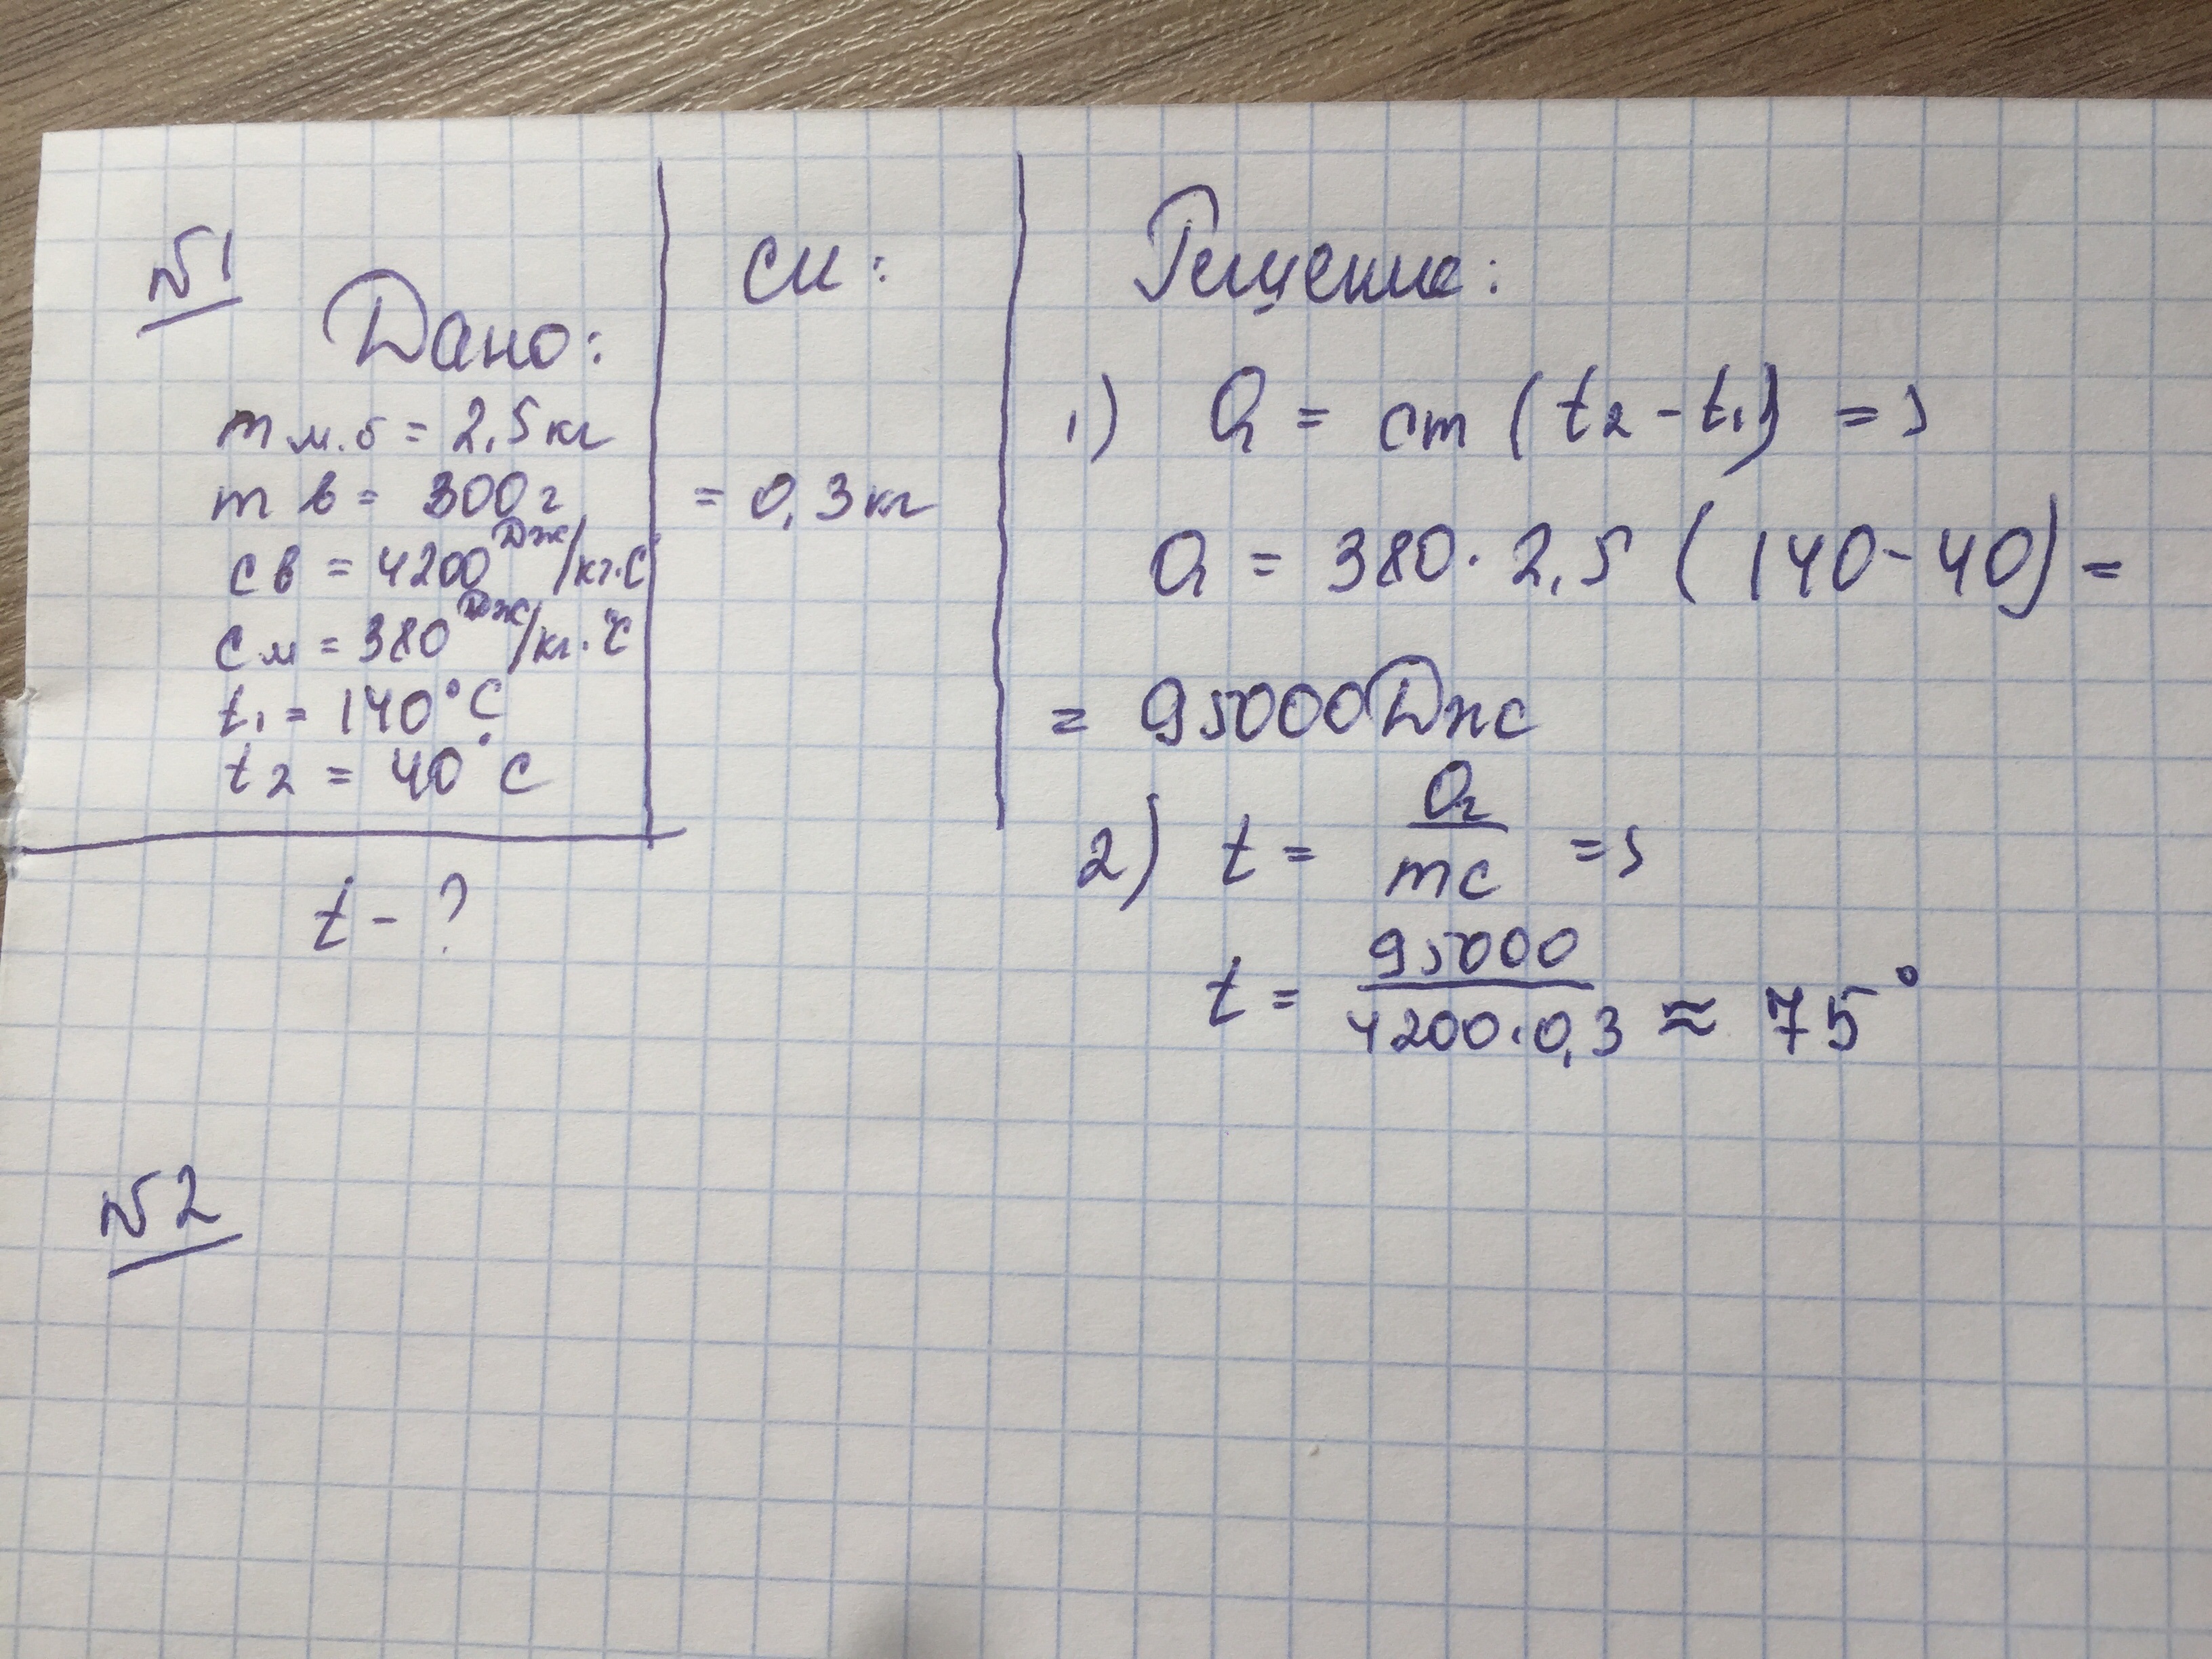 №1
Дано:
m м.б = 2,5 кг
m в = 300 г
c в = 4200 Дж/кг·С°
c м = 380 Дж/кг·°С
t₁ = 140°С
t₂ = 40°С
t - ?
СИ:
= 0,3 кг
Решение:
1) Q = cm (t₂ - t₁) =>
Q = 380 · 2,5 (140 - 40) =
= 95000 Дж
2) t = Q/mc =>
t = 95000/4200·0,3 ≈ 75°
№2